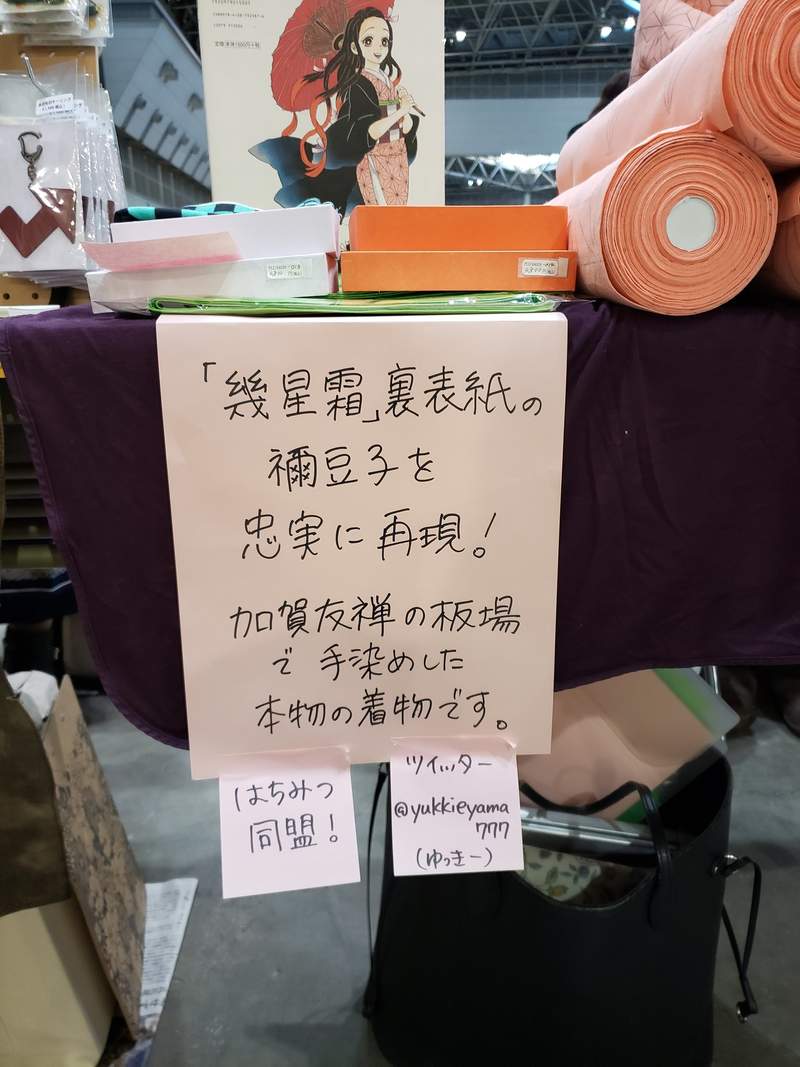 「幾星霜」裏表紙の
禰豆子を
忠実に再現!
加賀友禅の板場
で手染めした
本物の着物です。
はちみつ
同盟!
ツイッター
@yukkieyama
777
(ゆっきー)